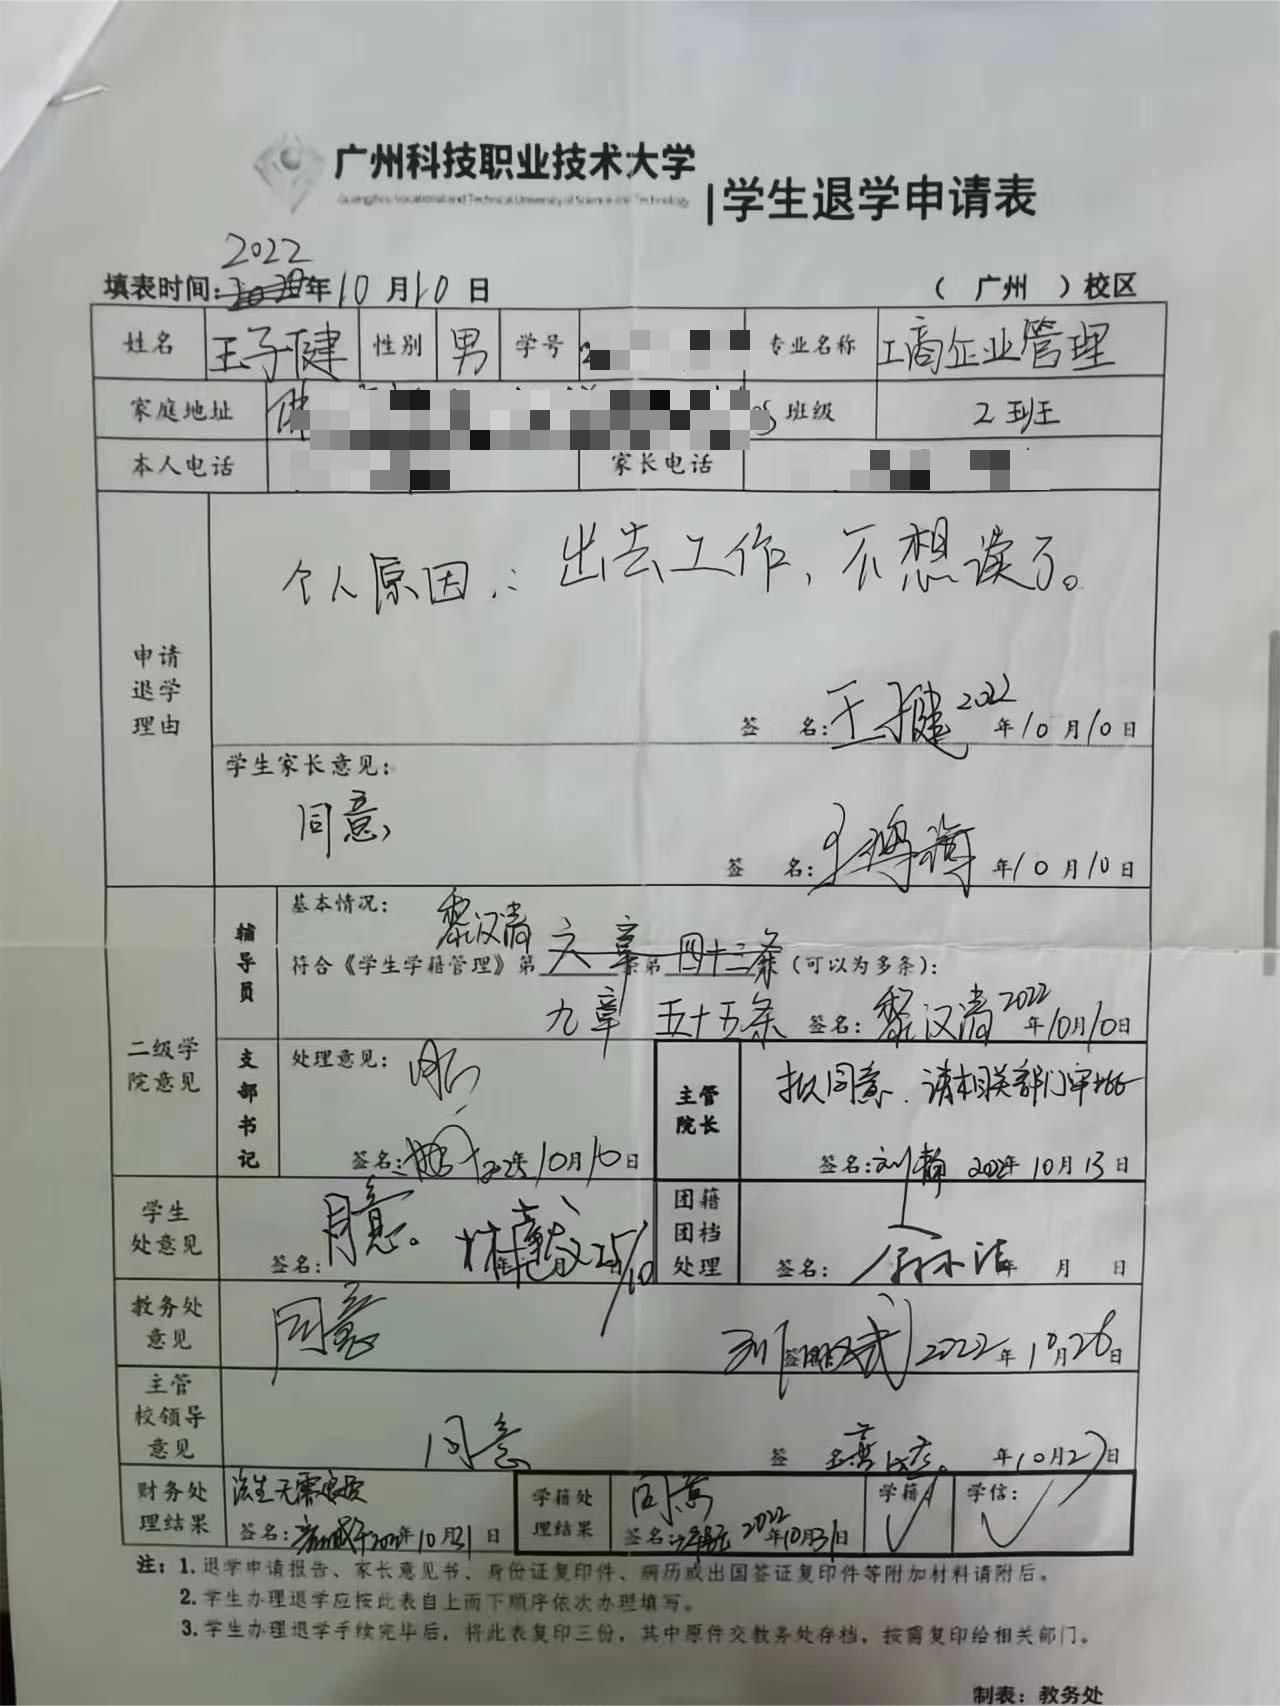 广州科技职业技术大学
Guangzhou Vocational and Technical University of Science and Technology
|学生退学申请表
2022
填表时间: 年10月10日 ( 广州 )校区
姓名 王子健 性别 男 学号 专业名称 工商企业管理
家庭地址 佛 班级 2班
本人电话 家长电话
个人原因,: 出去工作,不想读了。
申请退学理由
签 名: 王子健 2022年10月10日
学生家长意见:
同意
签 名: 年10月10日
二级学院意见
辅导员
基本情况:
黎汉清
符合《学生学籍管理》第 六章 条第 四十三条 (可以为多条):
九章 五十五条 签名: 黎汉清 2022年10月10日
支部书记
处理意见:
签名: 10月10日
主管院长
拟同意,请相关部门审批
签名: 刘静 2022年10月13日
学生处意见
同意。
签名: 25/10
团籍团档处理
签名: 年 月 日
教务处意见
同意
签 2022年10月26日
主管校领导意见
同意
签 名 年10月27日
财务处理结果
该生无需退费
签名: 2022年10月31日
学籍处理结果
同意
签名: 2022年10月31日
学籍: 学信:
注: 1. 退学申请报告、家长意见书、身份证复印件、病历或出国签证复印件等附加材料请附后。
2. 学生办理退学应按此表自上而下顺序依次办理填写。
3. 学生办理退学手续完毕后,将此表复印三份,其中原件交教务处存档,按需复印给相关部门。
制表:教务处